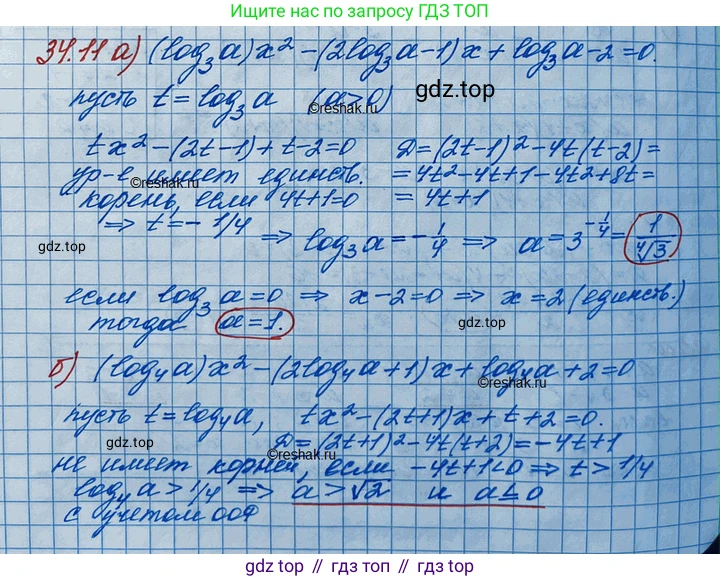 Ищите нас по запросу ГДЗ ТОП
34.11 а) (log₃a)x² − (2log₃a−1)x + log₃a−2=0.
пусть t = log₃a (a>0)
©reshak.ru
гдз.top
tx² − (2t−1) + t−2=0 D = (2t−1)² − 4t(t−2) =
ур-е имеет единств. = 4t² − 4t+1 − 4t² + 8t =
©reshak.ru
корень, если 4t+1=0 = 4t+1
⇒ t = − 1/4 ⇒ log₃a = −1/4 ⇒ a = 3^(−1/4) = 1/⁴√3
gdz.top
©reshak.ru
если log₃a=0 ⇒ x−2=0 ⇒ x=2 (единств.)
тогда a=1.
gdz.top
б) (log₄a)x² − (2log₄a+1)x + log₄a+2=0
©reshak.ru
пусть t = log₄a, tx² − (2t+1)x + t+2=0.
gdz.top
D = (2t+1)² − 4t(t+2) = −4t+1
не имеет корней, если −4t+1<0 ⇒ t > 1/4
©reshak.ru
log₄a > 1/4 ⇒ a > √2 и a ≤ 0
с учетом ООФ
gdz.top // гдз.топ // гдз.top // gdz.топ